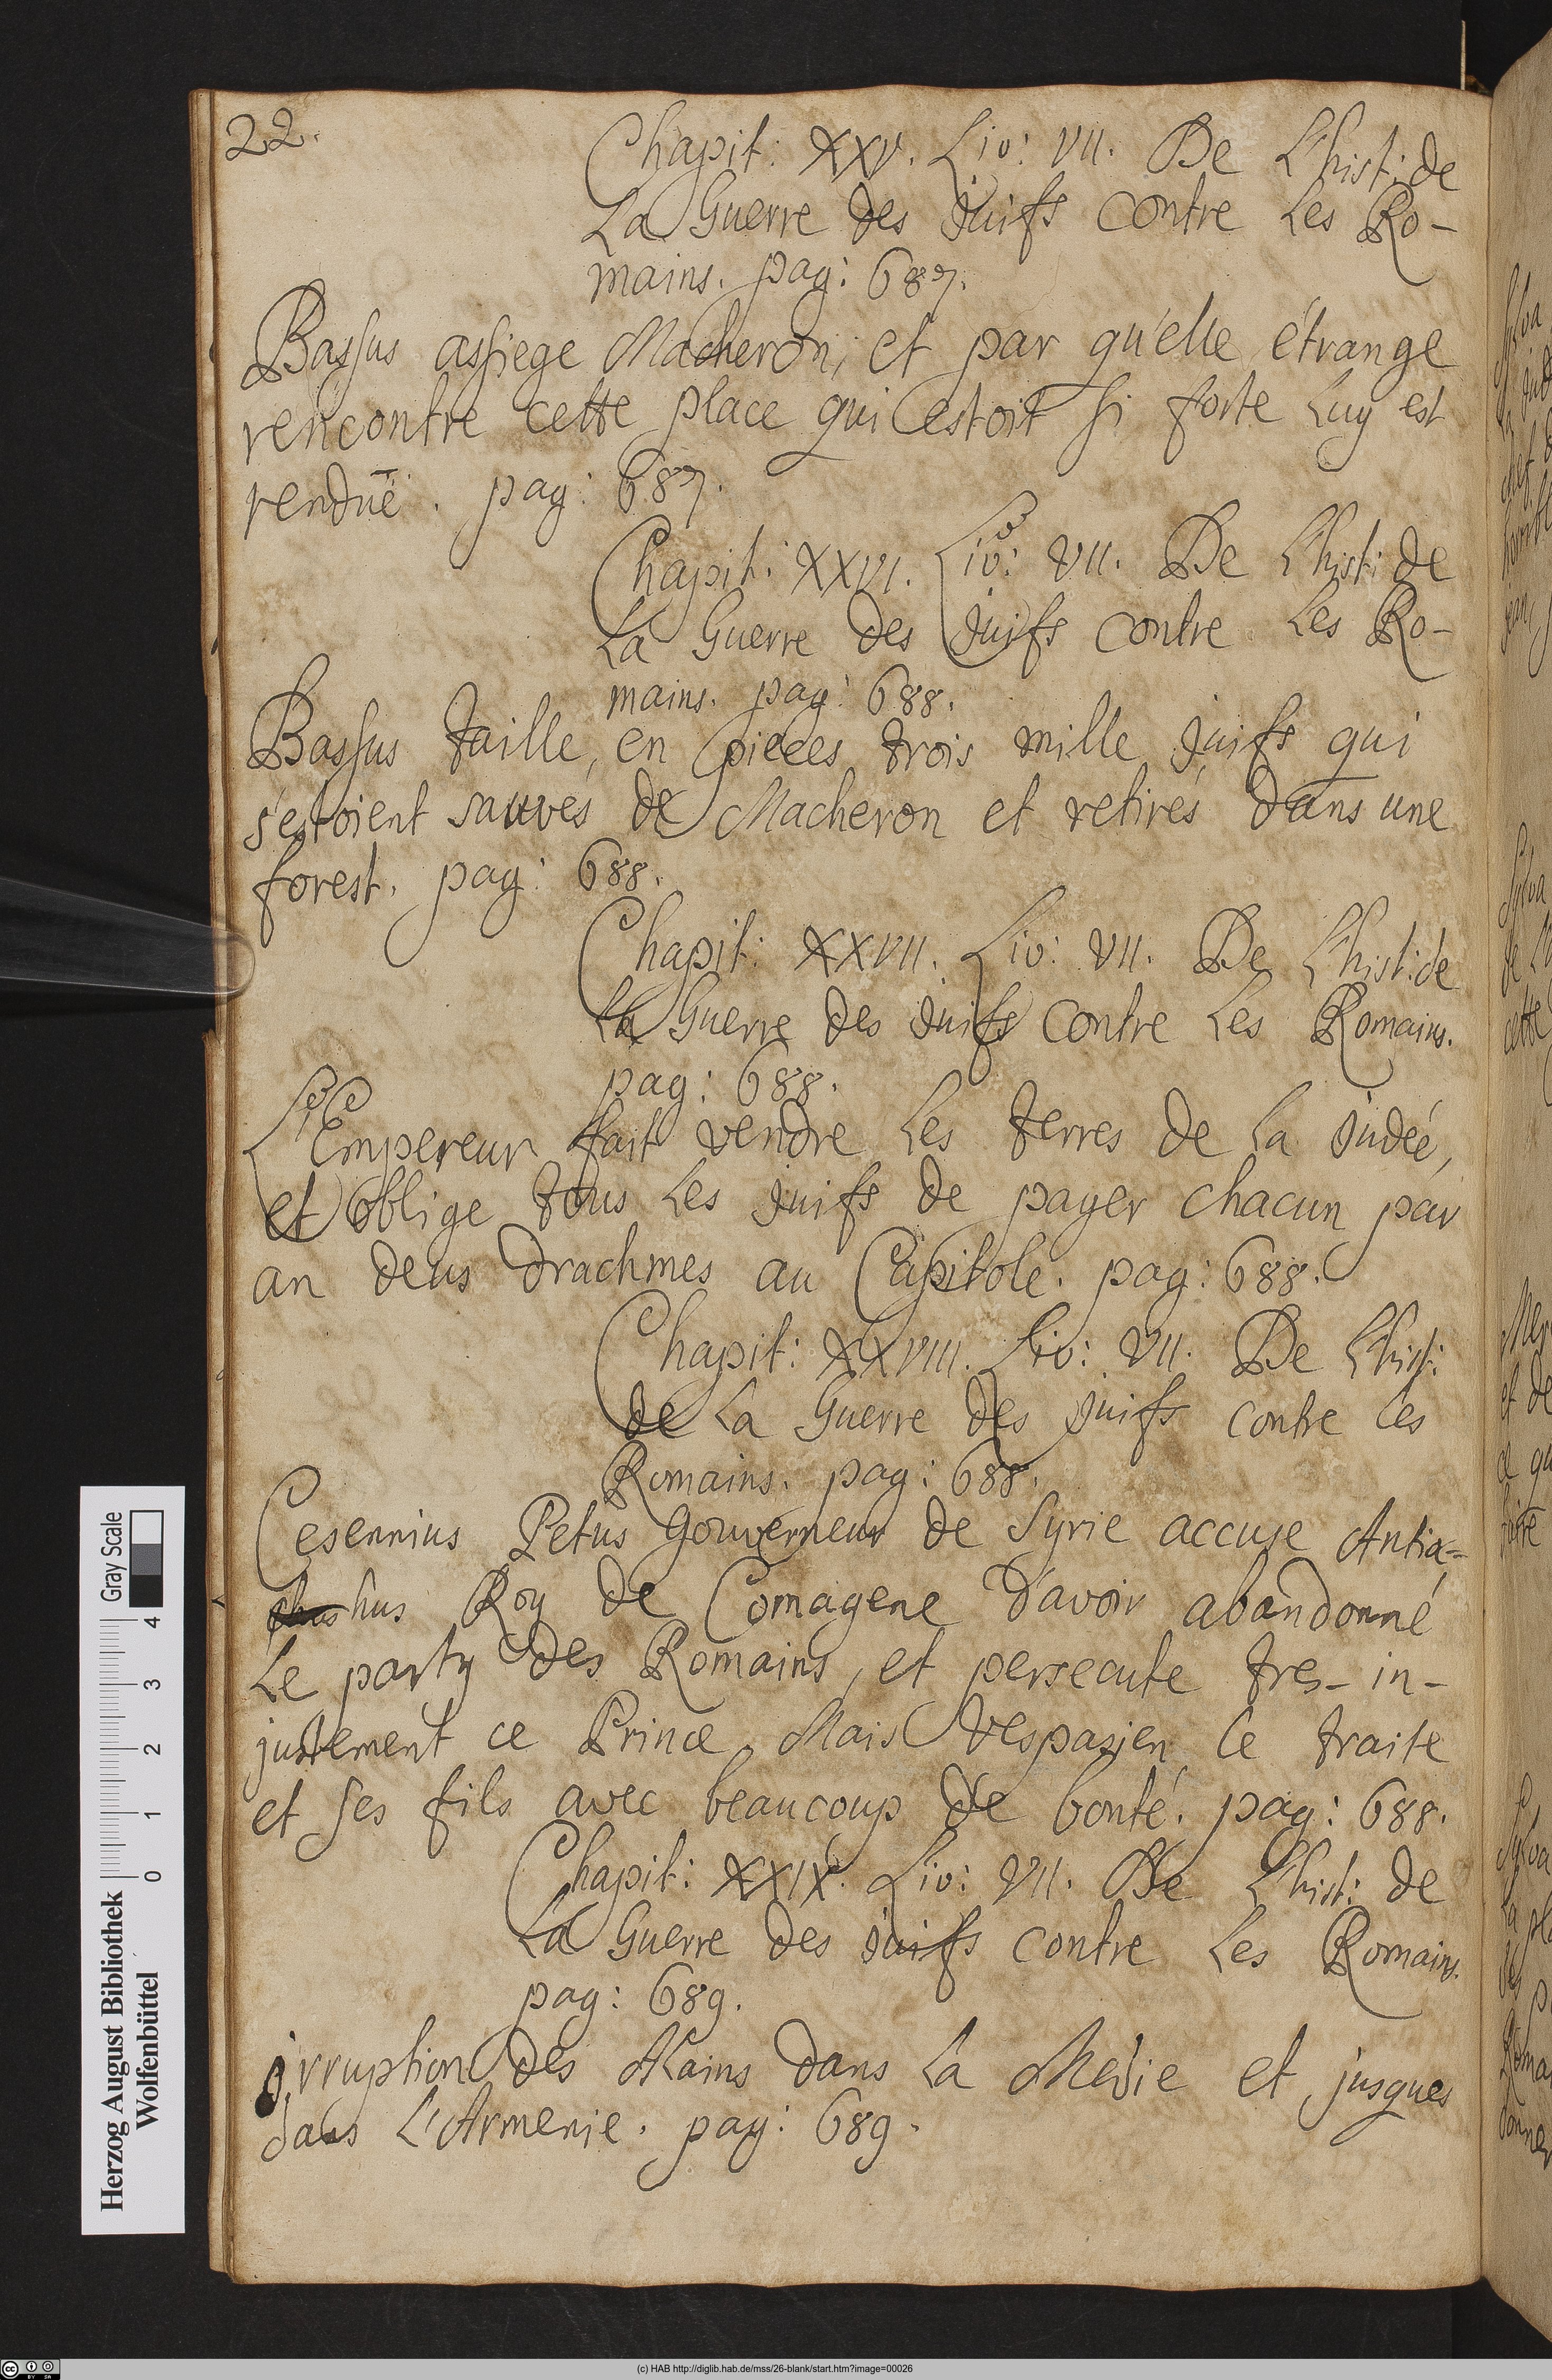 22.
Chapit: XXV. Liv: VII. De L'hist: de
La Guerre des juifs contre Les Ro-
mains. pag: 687.
Bassus assiege Macheron; et par qu'elle étrange
rencontre cette place qui estoit si forte Luy est
renduë. pag: 687.
Chapit: XXVI. Liv: VII. De L'hist: de
La Guerre des juifs contre Les Ro-
mains. pag: 688.
Bassus taille, en pieces trois mille juifs qui
s'estoient sauvés de Macheron et retirés dans une
forest. pag: 688.
Chapit: XXVII. Liv: VII. De L'hist: de
La Guerre des juifs contre Les Romains.
pag: 688.
L'Empereur fait vendre Les terres de La judeé,
et oblige tous Les juifs de payer chacun par
an deus drachmes au Capitole. pag: 688.
Chapit: XXVIII. Liv: VII. De L'hist:
de La Guerre des juifs contre Les
Romains. pag: 688.
Cesennius Petus gouverneur de Syrie accuse Antio=
hus Roy de Comagene d'avoir abandonné
Le party des Romains, et persecute tres-in-
justement ce Prince. Mais Vespasien Le traite
et ses fils avec beaucoup de bonté. pag: 688.
Chapit: XXIX. Liv: VII. De L'hist: de
La Guerre des juifs contre Les Romains.
pag: 689.
jrruption des Alains dans La Medie et jusques
dans L'Armenie. pag: 689.
Herzog August Bibliothek
Wolfenbüttel
Gray Scale
0 1 2 3 4
(c) HAB http://diglib.hab.de/mss/26-blank/start.htm?image=00026